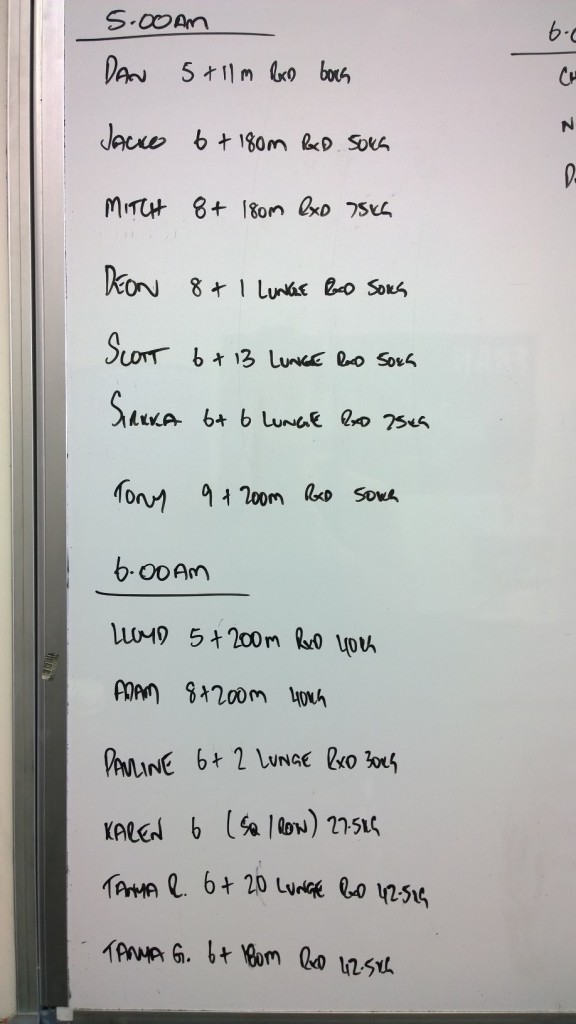 5.00AM
DAN 5 + 11m RxD 60KG
JACKO 6 + 180m RxD 50KG
MITCH 8 + 180m RxD 75KG
DEON 8 + 1 LUNGE RxD 50KG
SCOTT 6 + 13 LUNGE RxD 50KG
SIRKKA 6 + 6 LUNGE RxD 75KG
TONY 9 + 200m RxD 50KG
6.00AM
LLOYD 5 + 200m RxD 40KG
ADAM 8 + 200m 40KG
PAULINE 6 + 2 LUNGE RxD 30KG
KAREN 6 (SQ / ROW) 27.5KG
TANYA R. 6 + 20 LUNGE RxD 42.5KG
TANYA G. 6 + 180m RxD 42.5KG